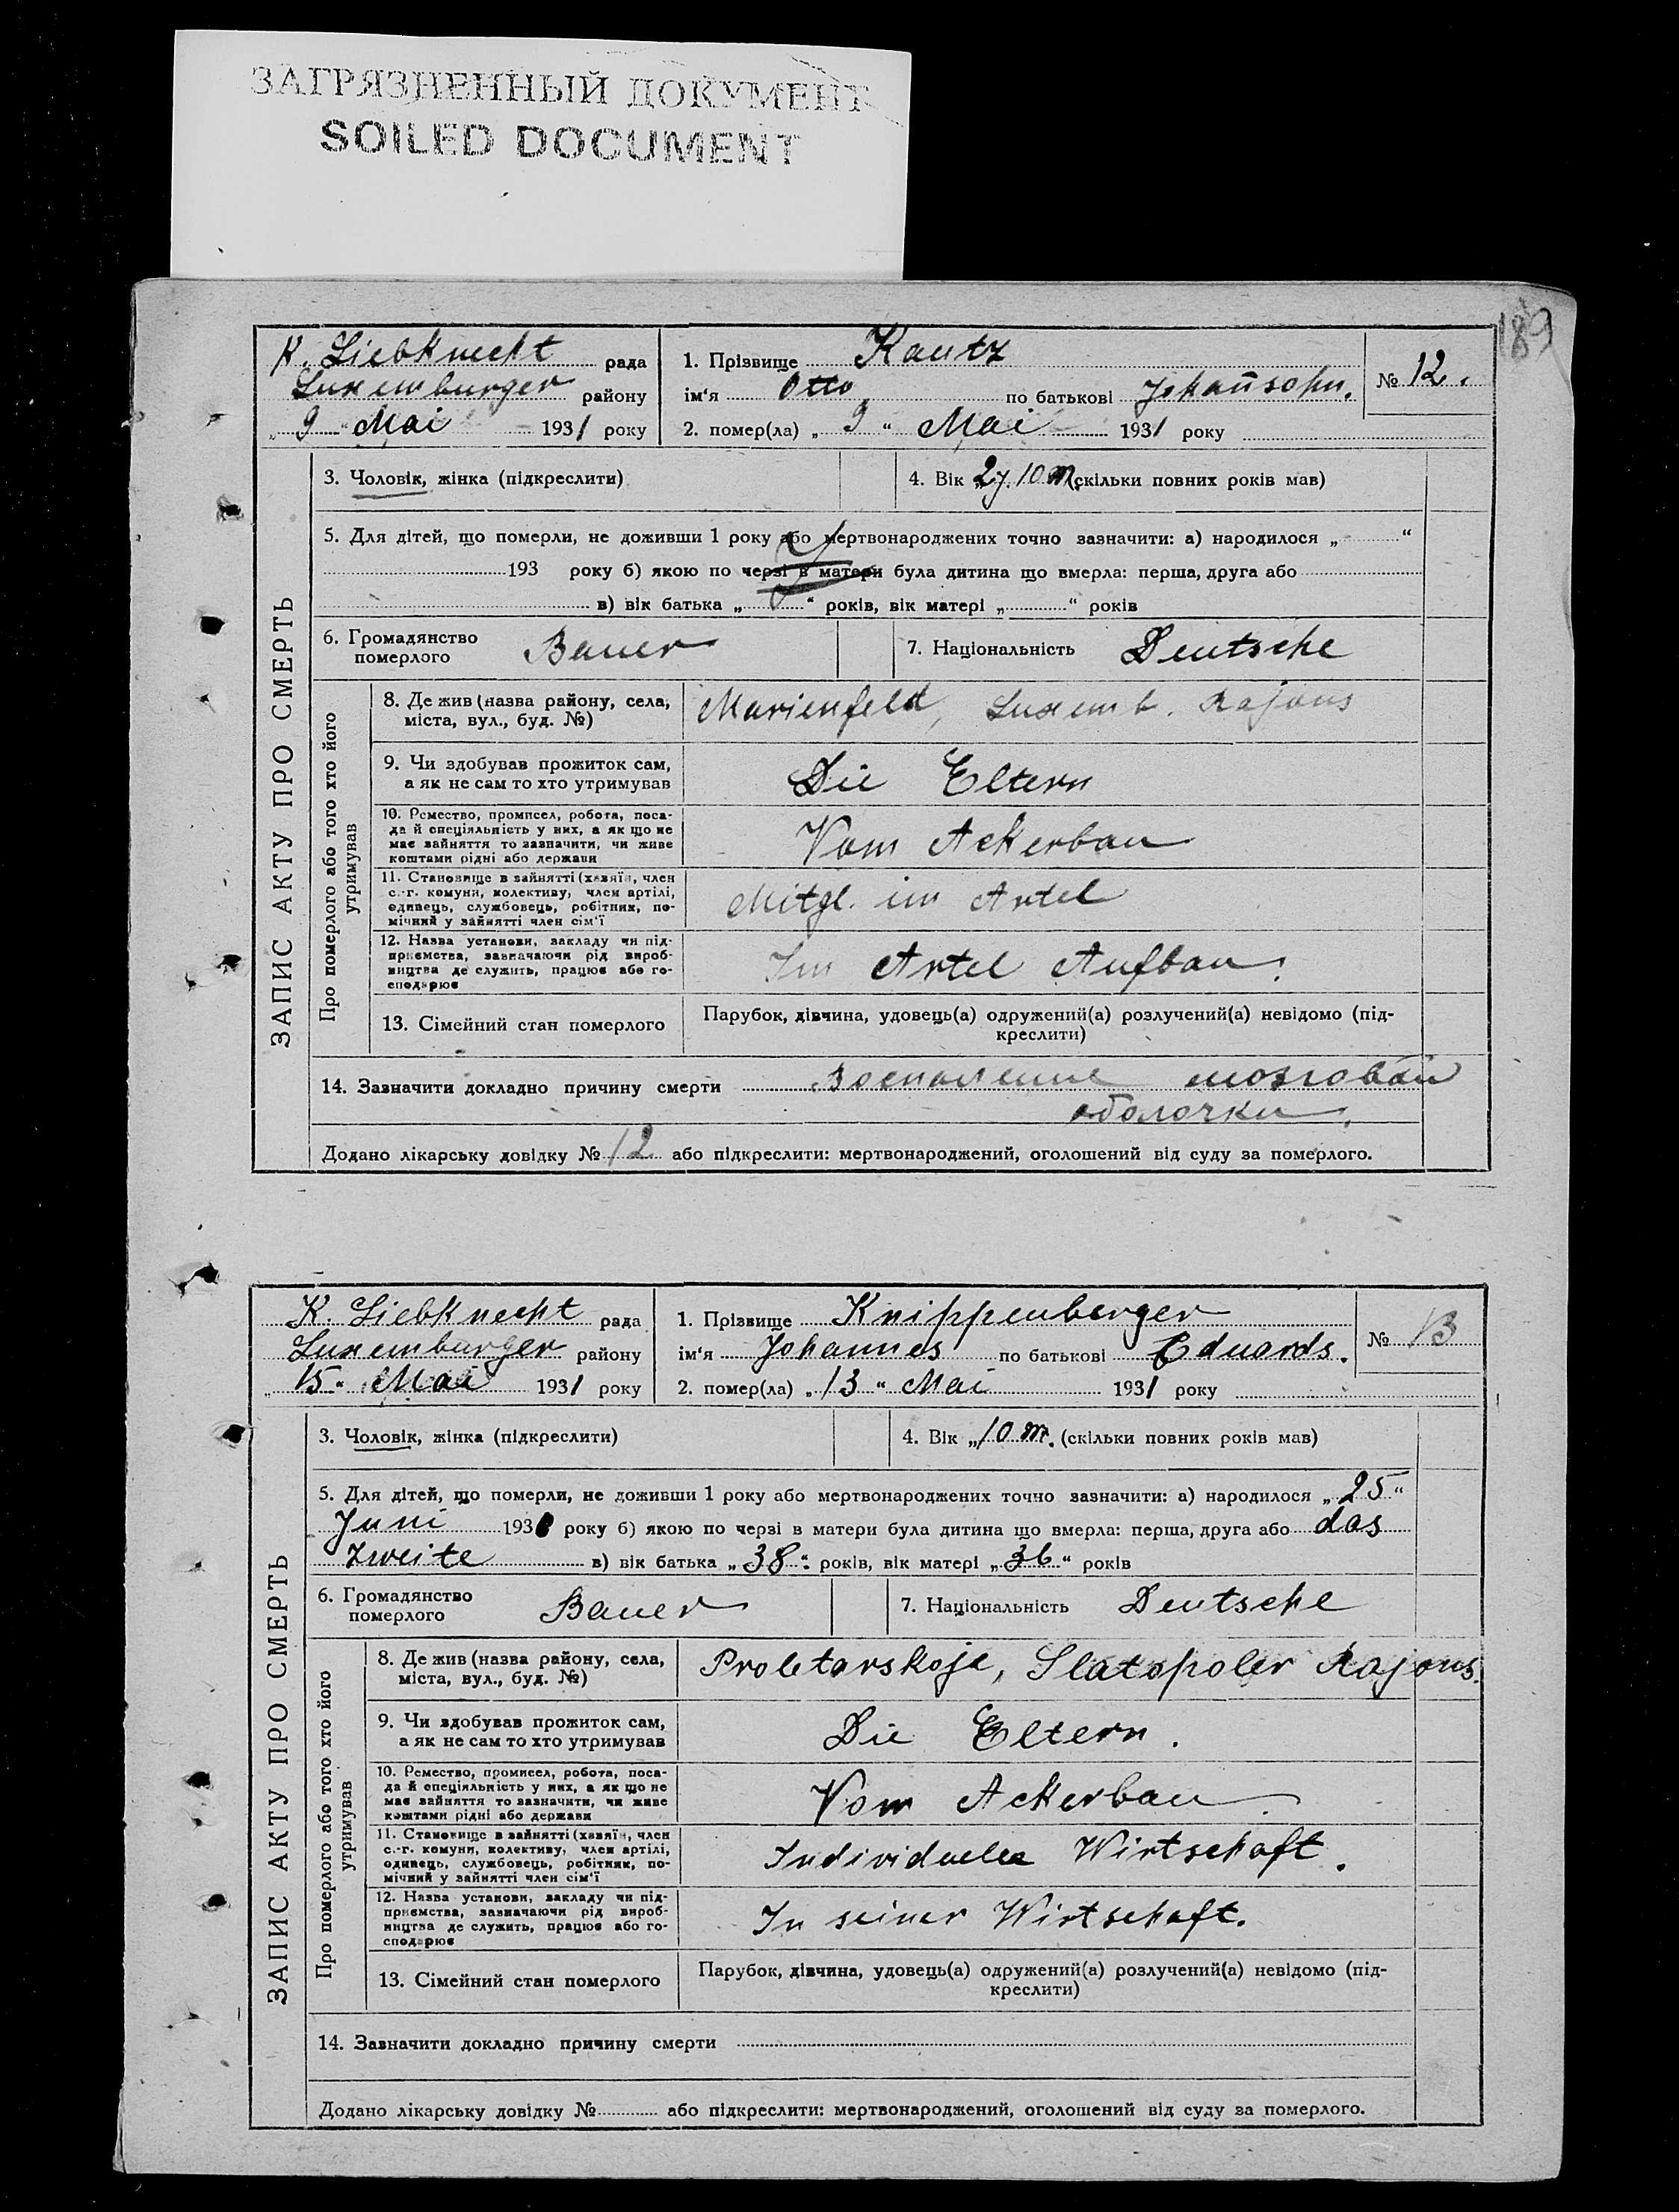 ЗАГРЯЗНЕННЫЙ ДОКУМЕНТ
SOILED DOCUMENT
189
K. Liebknecht рада
Luxemburger району
„ 9 “ Mai 1931 року
1. Прізвище Kautz
ім‘я Otto по батькові Johañsohn.
2. помер(ла) „ 9 “ Mai 1931 року
№ 12.
ЗАПИС АКТУ ПРО СМЕРТЬ
3. Чоловік, жінка (підкреслити)
4. Вік „2j. 10 m. (скільки повних років мав)
5. Для дітей, що померли, не доживши 1 року або мертвонароджених точно зазначити: а) народилося „ “
193 року б) якою по черзі в матери була дитина що вмерла: перша, друга або
в) вік батька „ “ років, вік матері „ “ років
6. Громадянство
померлого Bauer
7. Національність Deutsche
Про померлого або того хто його
утримував
8. Де жив (назва району, села,
міста, вул., буд. №)
Marienfeld, Luxemb. Rajons
9. Чи здобував прожиток сам,
а як не сам то хто утримував
Die Eltern
10. Ремество, промисел, робота, поса-
да й спеціяльність у них, а як що не
має зайняття то зазначити, чи живе
коштами рідні або держави
Vom Ackerbau
11. Становище в зайнятті (хазяїн, член
с.-г. комуни, колективу, член артілі,
одинець, службовець, робітник, по-
мічний у зайнятті член сім‘ї
Mitgl. im Artel
12. Назва установи, закладу чи під-
приємства, зазначаючи рід вироб-
ництва де служить, працює або го-
сподарює
Im Artel Aufbau.
13. Сімейний стан померлого
Парубок, дівчина, удовець(а) одружений(а) розлучений(а) невідомо (під-
креслити)
14. Зазначити докладно причину смерти Воспаление мозговой
оболочки.
Додано лікарську довідку № 12 або підкреслити: мертвонароджений, оголошений від суду за померлого.
K. Liebknecht рада
Luxemburger району
„ 15 “ Mai 1931 року
1. Прізвище Knippenberger
ім‘я Johannes по батькові Eduards.
2. помер(ла) „ 13 “ Mai 1931 року
№ 13
ЗАПИС АКТУ ПРО СМЕРТЬ
3. Чоловік, жінка (підкреслити)
4. Вік „10 m. (скільки повних років мав)
5. Для дітей, що померли, не доживши 1 року або мертвонароджених точно зазначити: а) народилося „ 25 “
Juni 1930 року б) якою по черзі в матери була дитина що вмерла: перша, друга або das
zweite в) вік батька „ 38 “ років, вік матері „ 36 “ років
6. Громадянство
померлого Bauer
7. Національність Deutsche
Про померлого або того хто його
утримував
8. Де жив (назва району, села,
міста, вул., буд. №)
Proletarskoje, Slatopoler Rajons.
9. Чи здобував прожиток сам,
а як не сам то хто утримував
Die Eltern.
10. Ремество, промисел, робота, поса-
да й спеціяльність у них, а як що не
має зайняття то зазначити, чи живе
коштами рідні або держави
Vom Ackerbau.
11. Становище в зайнятті (хазяїн, член
с.-г. комуни, колективу, член артілі,
одинець, службовець, робітник, по-
мічний у зайнятті член сім‘ї
Individuelle Wirtschaft.
12. Назва установи, закладу чи під-
приємства, зазначаючи рід вироб-
ництва де служить, працює або го-
сподарює
In seiner Wirtschaft.
13. Сімейний стан померлого
Парубок, дівчина, удовець(а) одружений(а) розлучений(а) невідомо (під-
креслити)
14. Зазначити докладно причину смерти
Додано лікарську довідку № або підкреслити: мертвонароджений, оголошений від суду за померлого.